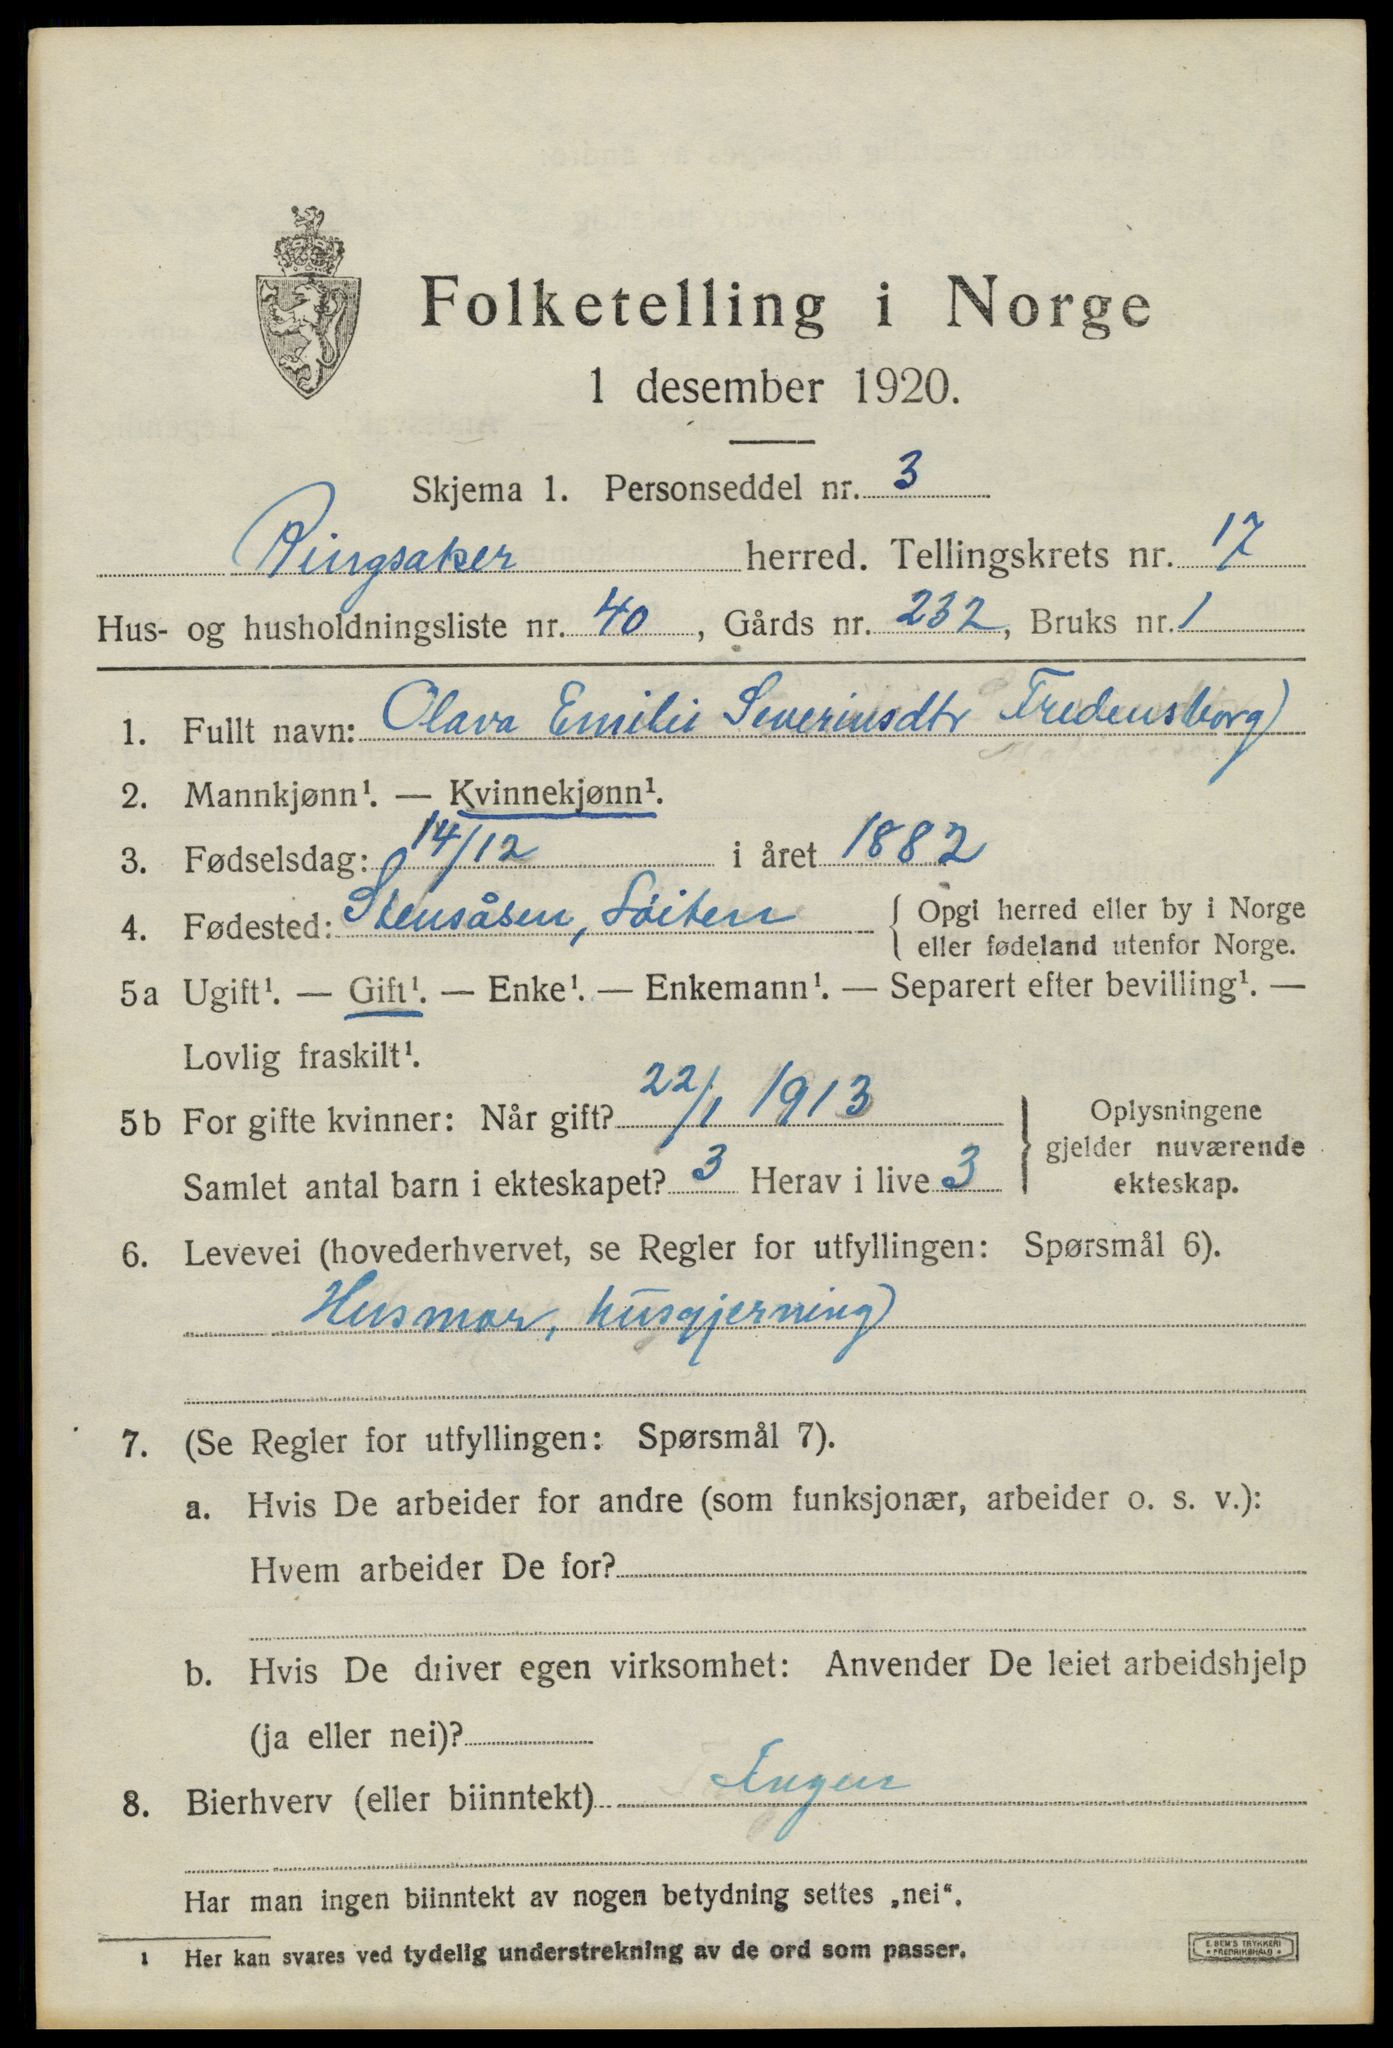 Folketelling i Norge
1 desember 1920.
Skjema 1. Personseddel nr. 3
Ringsaker herred. Tellingskrets nr. 17
Hus- og husholdningsliste nr. 40, Gårds nr. 232, Bruks nr. 1
1. Fullt navn: Olava Emilie Severinsdtr Fredensborg
2. Mannkjønn¹. — Kvinnekjønn¹.
3. Fødselsdag: 14/12 i året 1882
4. Fødested: Stensåsen, Løiten { Opgi herred eller by i Norge
eller fødeland utenfor Norge.
5a Ugift¹. — Gift¹. — Enke¹. — Enkemann¹. — Separert efter bevilling¹. —
Lovlig fraskilt¹.
5b For gifte kvinner: Når gift? 22/1 1913 } Oplysningene
gjelder nuværende
Samlet antal barn i ekteskapet? 3 Herav i live 3 ekteskap.
6. Levevei (hovederhvervet, se Regler for utfyllingen: Spørsmål 6).
Husmor, husgjerning
7. (Se Regler for utfyllingen: Spørsmål 7).
a. Hvis De arbeider for andre (som funksjonær, arbeider o. s. v.):
Hvem arbeider De for?
b. Hvis De driver egen virksomhet: Anvender De leiet arbeidshjelp
(ja eller nei)?
8. Bierhverv (eller biinntekt) Ingen
Har man ingen biinntekt av nogen betydning settes „nei“.
1 Her kan svares ved tydelig understrekning av de ord som passer.
E. SEM'S TRYKKERI
• FREDRIKSHALD •